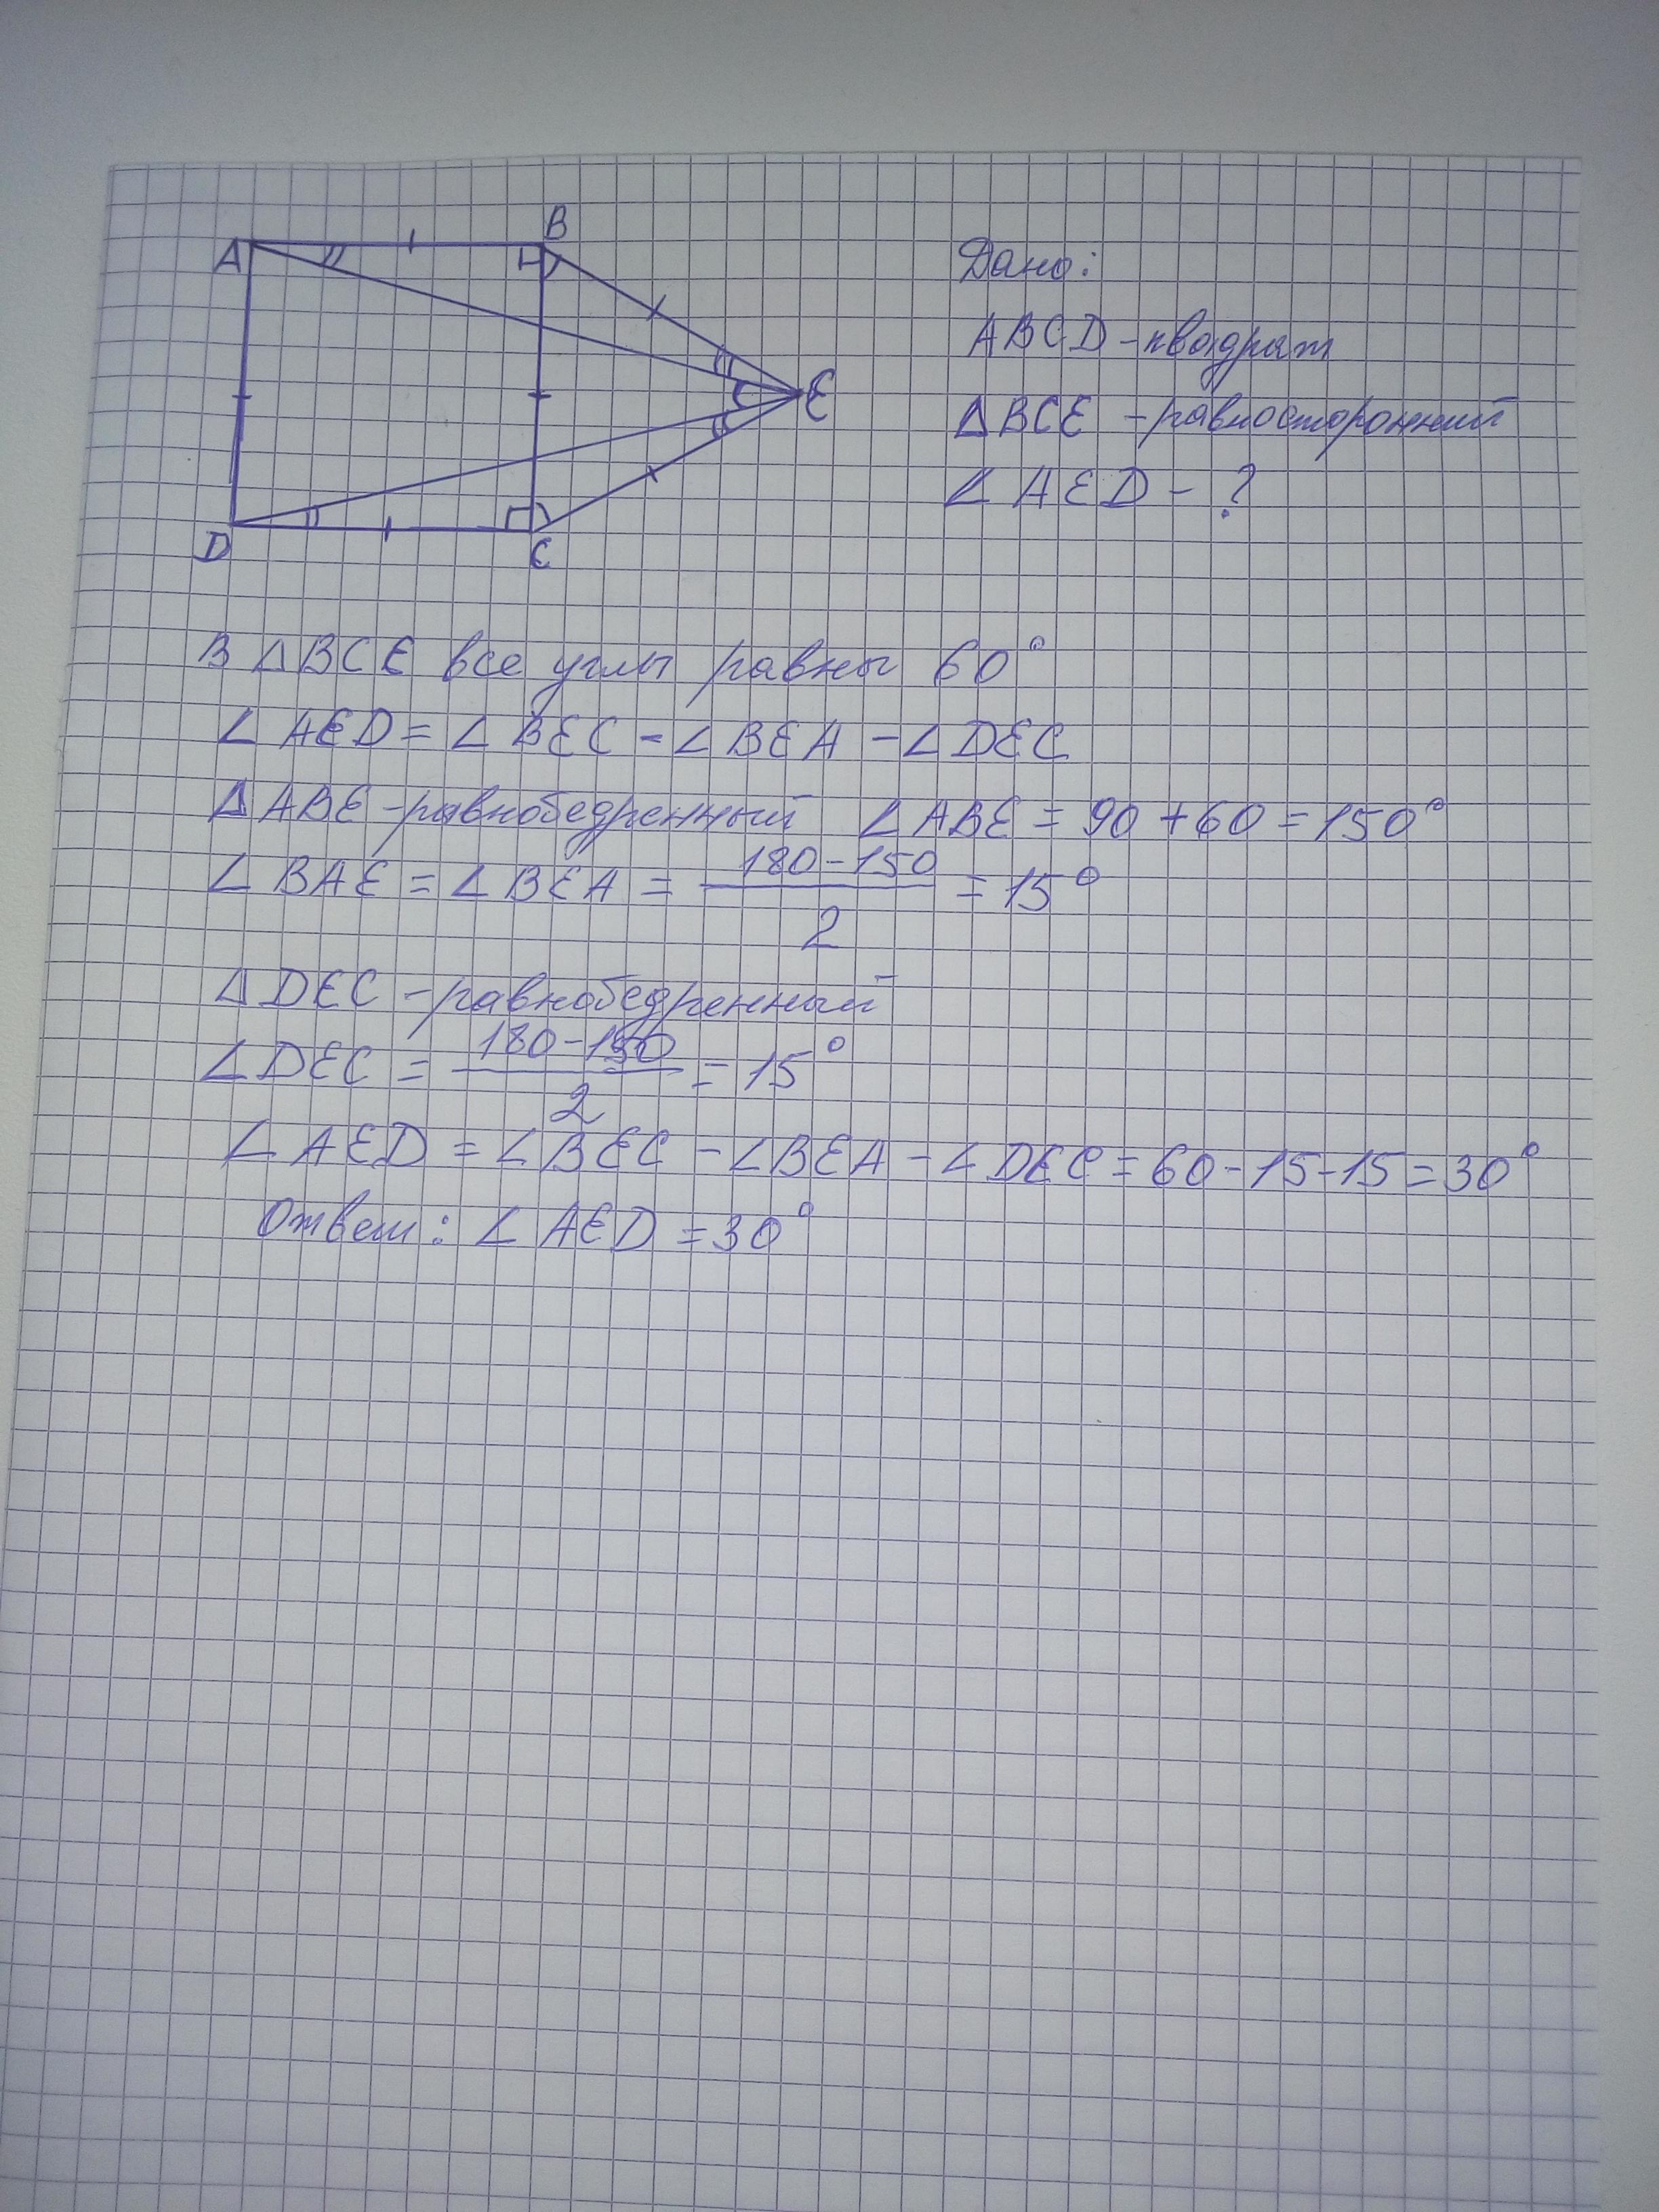 A
B
Дано:
ABCD - квадрат
E
△BCE - равносторонний
∠AED - ?
D
C
В △BCE все углы равны 60°
∠AED = ∠BEC - ∠BEA - ∠DEC
△ABE - равнобедренный ∠ABE = 90 + 60 = 150°
∠BAE = ∠BEA = (180 - 150)/2 = 15°
△DEC - равнобедренный
∠DEC = (180 - 150)/2 = 15°
∠AED = ∠BEC - ∠BEA - ∠DEC = 60 - 15 - 15 = 30°
Ответ: ∠AED = 30°